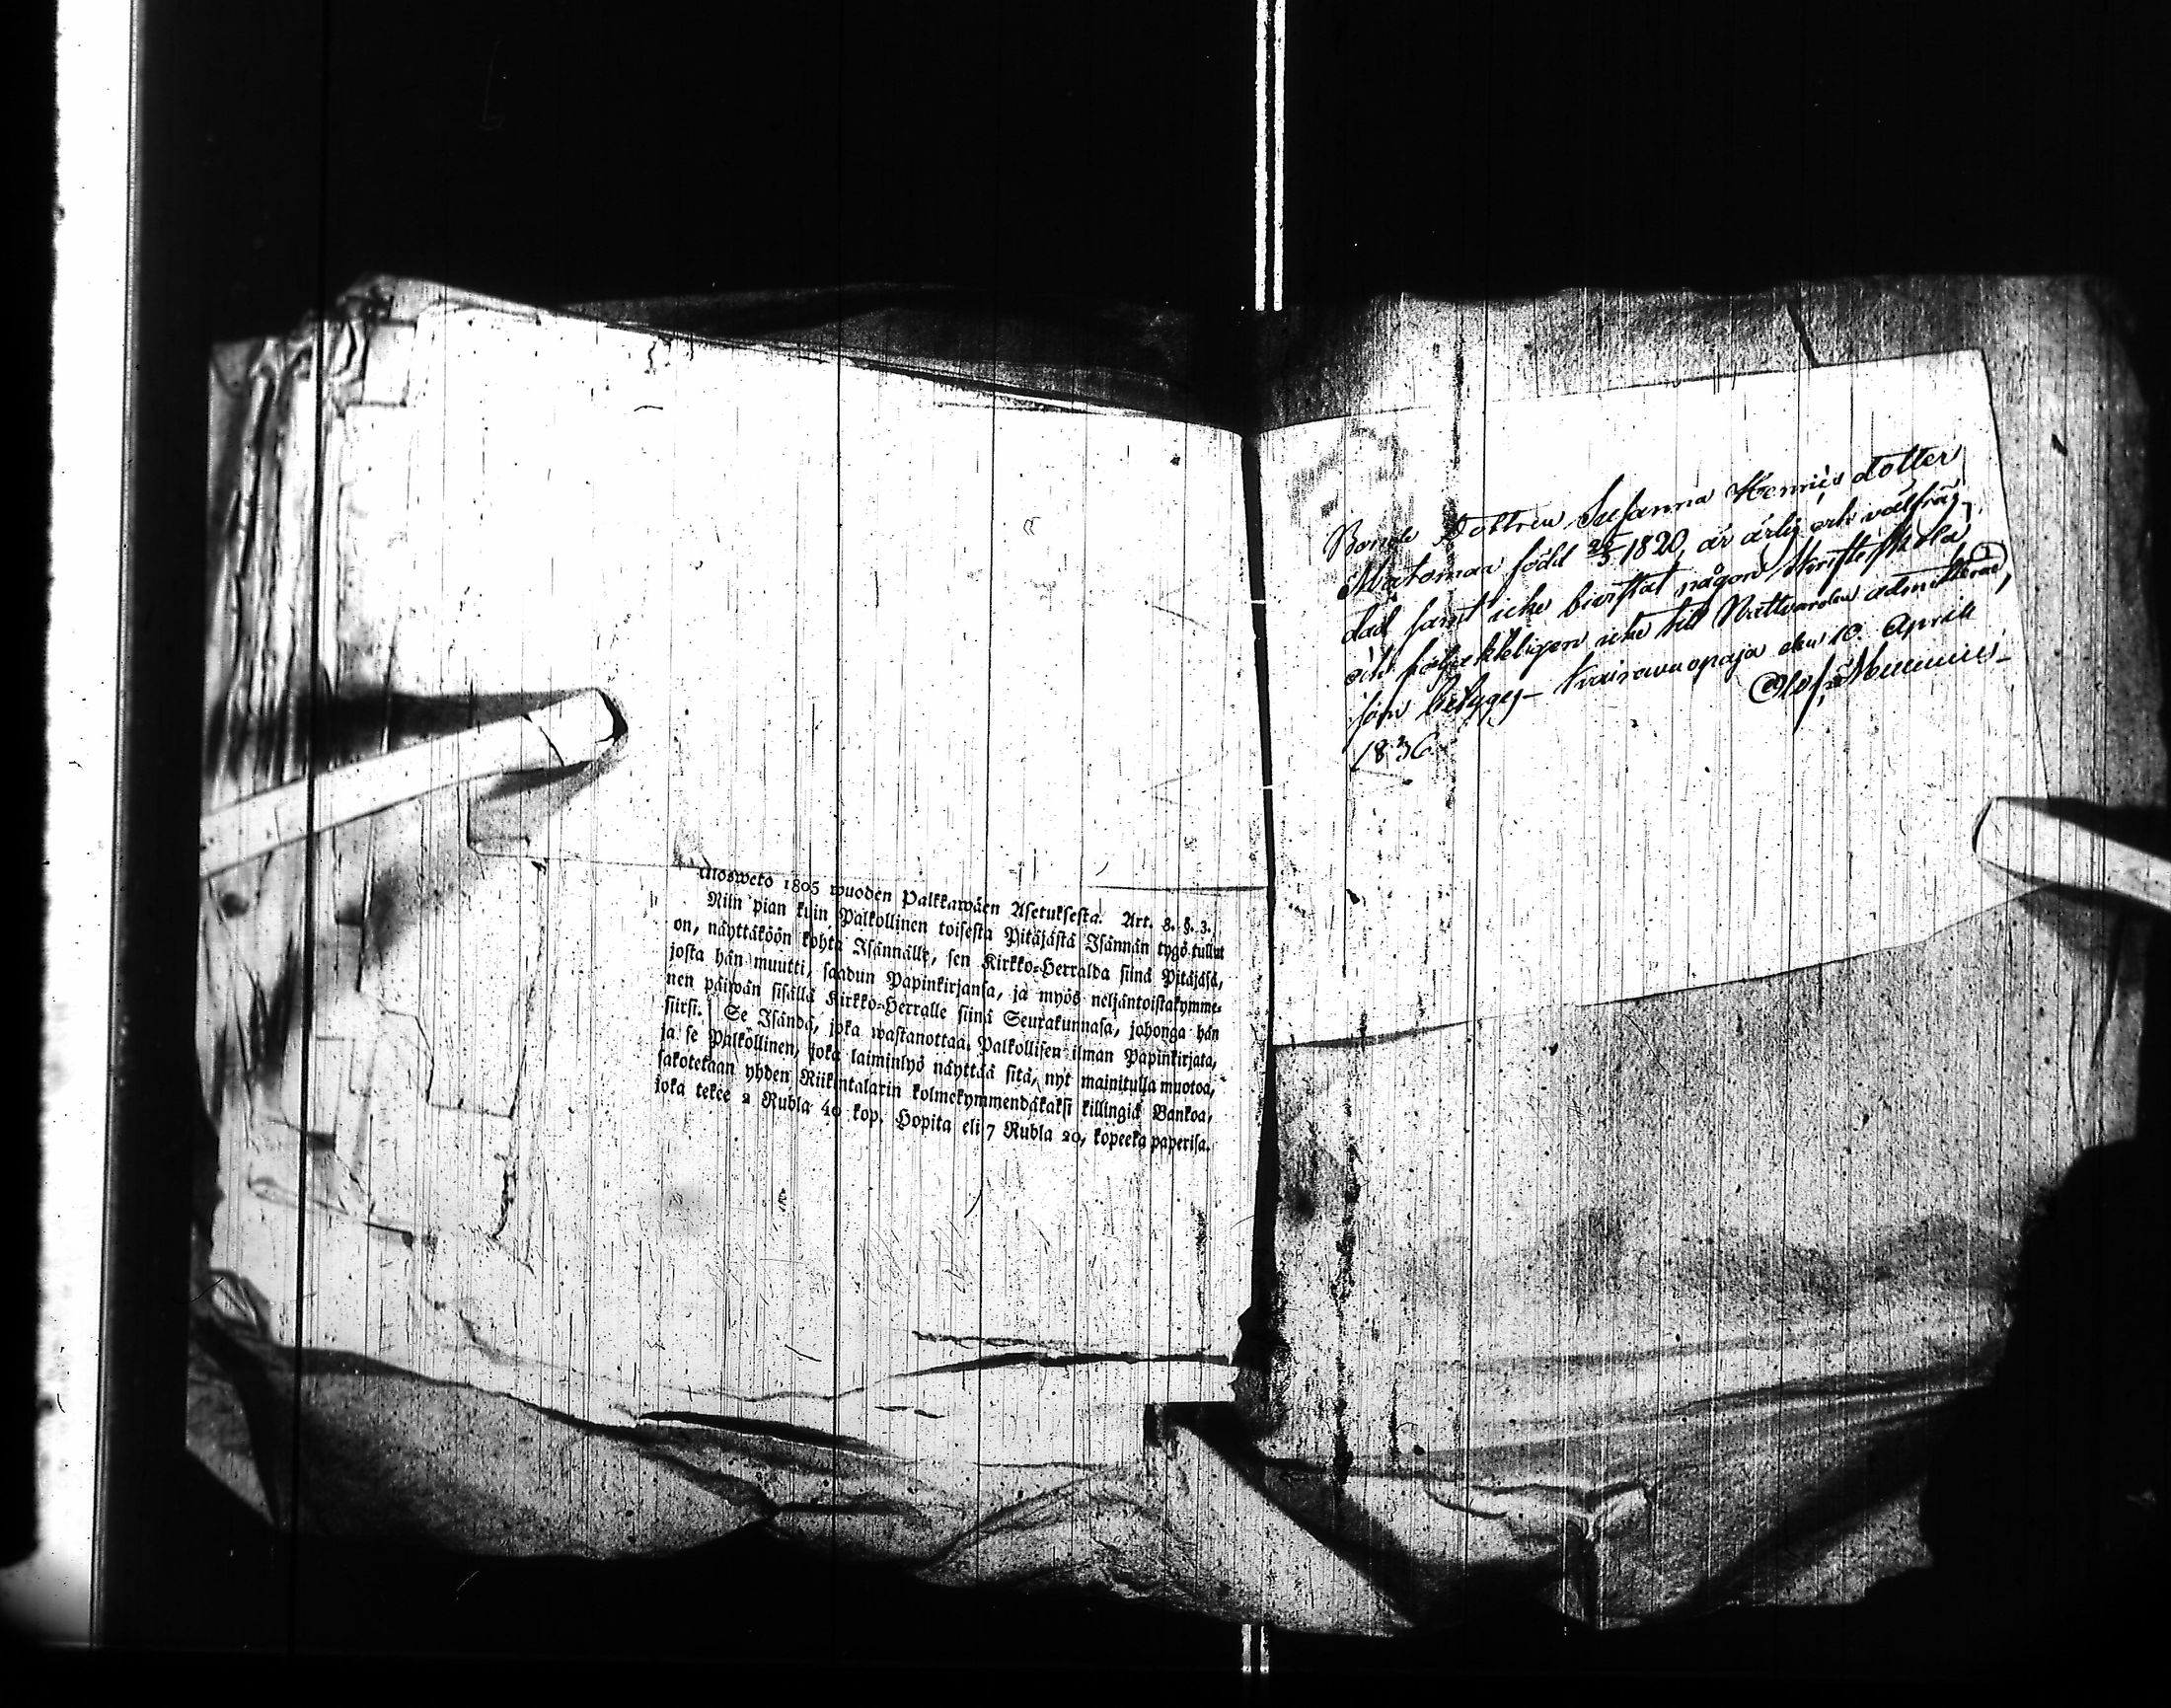 Ulosweto 1805 wuoden Palkkawäen Asetuksesta. Art. 8. §. 3.
Niin pian kuin Palkollinen toisesta Pitäjästä Isännän tygö tullut
on, näyttäköön kohta Isännälle, sen Kirkko-Herralda siinä Pitäjäsä,
josta hän muutti, saadun Papinkirjansa, ja myös neljäntoistakymme-
nen päiwän sisällä Kirkko-Herralle siinä Seurakunnasa, johonga hän
siirsi. Se Isändä, joka wastanottaa Palkollisen ilman Papinkirjata,
ja se Palkollinen, joka laiminlyö näyttää sitä, nyt mainitulla muotoa,
sakotetaan yhden Riikintalarin kolmekymmendäkaksi killingiä Bankoa,
joka tekee 2 Rubla 40 kop. Hopita eli 7 Rubla 20, kopeeka paperisa.
Bonde Dottren Susanna Henrics dotter
Matomaa född 1820, är ärlig och välfräg-
dad samt icke bivistat någon skriftskola
och följaktligen icke till Nattvarden admitterad,
som betygas Kuiravuopaja den 10. April
1836. Olof